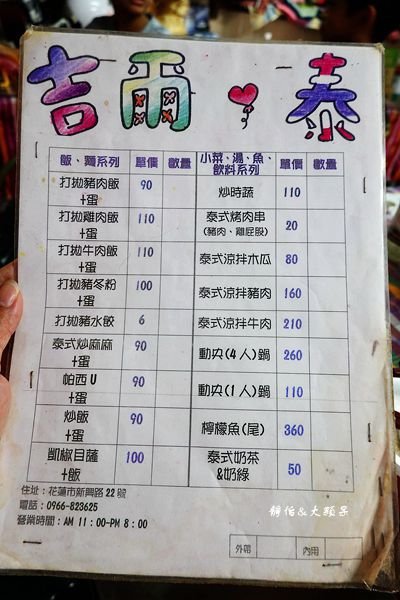 吉爾泰
飯、麵系列 單價 數量 小菜、湯、魚、飲料系列 單價 數量
打拋豬肉飯+蛋 90 炒時蔬 110
打拋雞肉飯+蛋 110 泰式烤肉串(豬肉、雞屁股) 20
打拋牛肉飯+蛋 110 泰式涼拌木瓜 80
打拋豬冬粉+蛋 100 泰式涼拌豬肉 160
打拋豬水餃 6 泰式涼拌牛肉 210
泰式炒麻麻+蛋 90 動央(4人)鍋 260
帕西U+蛋 90 動央(1人)鍋 110
炒飯+蛋 90 檸檬魚(尾) 360
凱椒目薩+飯 100 泰式奶茶&奶綠 50
住址：花蓮市新興路22號
電話：0966-823625
營業時間：AM 11：00-PM 8：00
外帶 內用